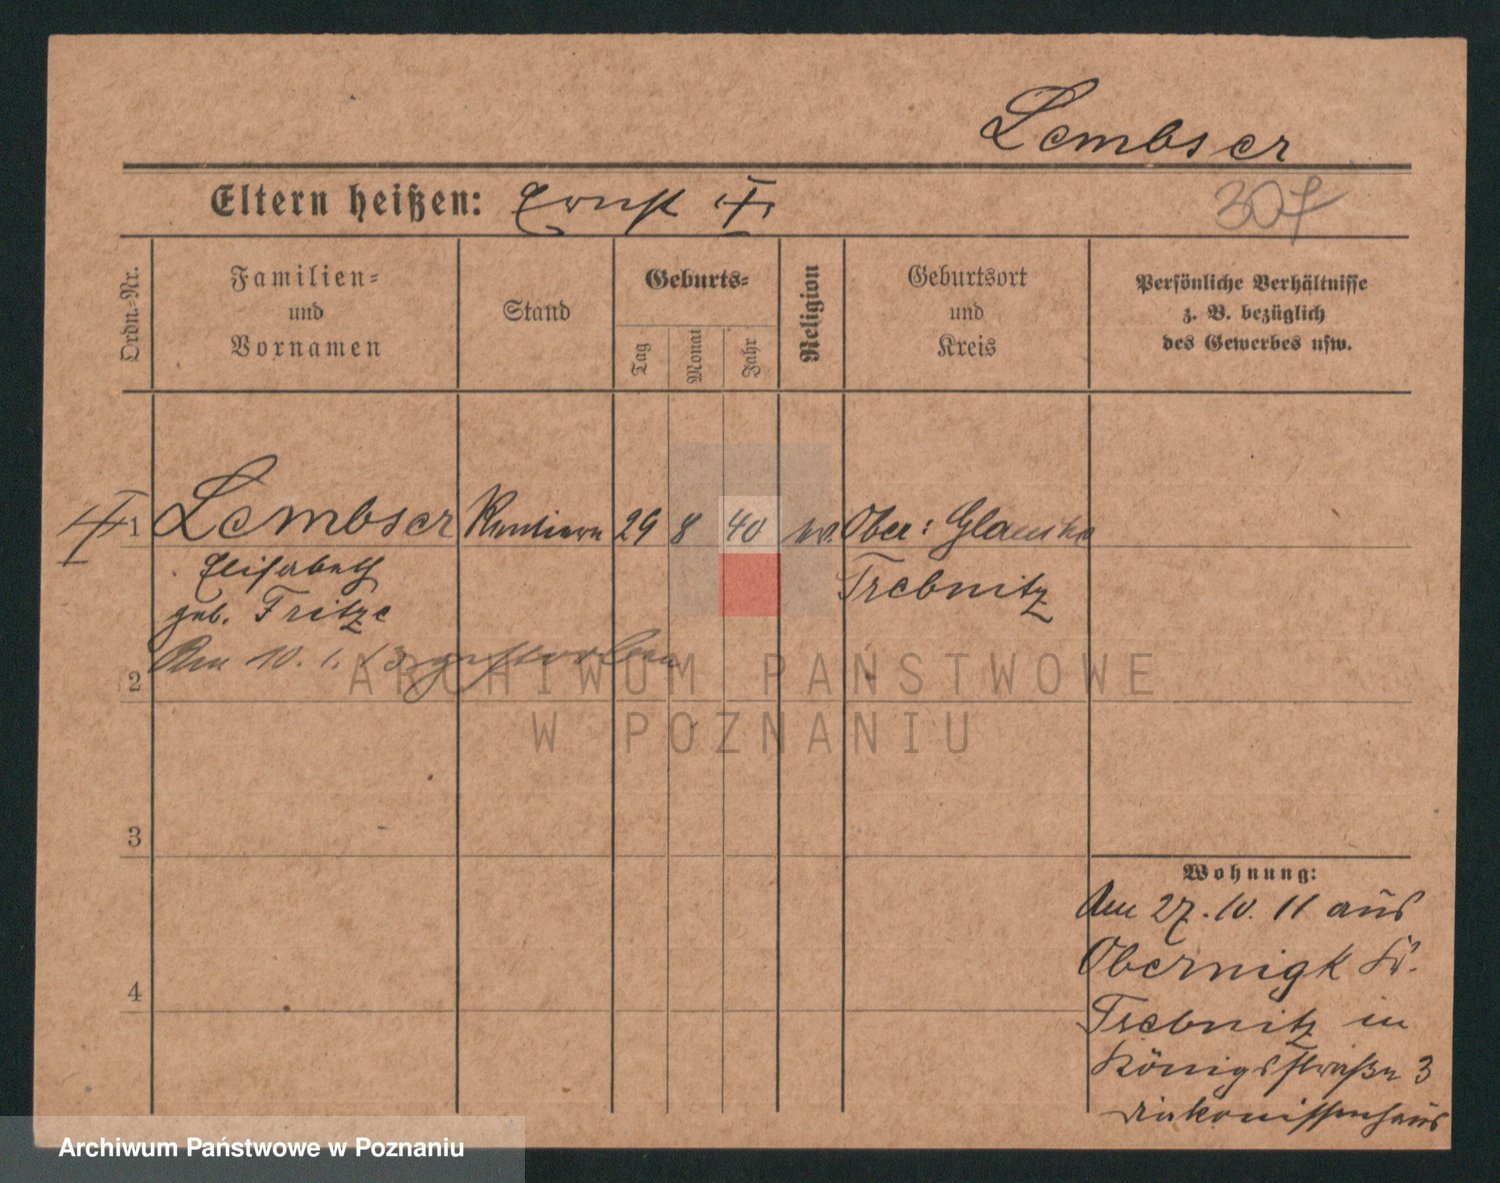 Lembser
Eltern heißen: Ernst
307
Ordn.-Nr.
Familien-
und
Vornamen
Stand
Geburts-
Tag
Monat
Jahr
Religion
Geburtsort
und
Kreis
Persönliche Verhältnisse
z. B. bezüglich
des Gewerbes usw.
1 Lembser Rentiere 29 8 40 Ober: Glauche
Elisabeth Trebnitz
geb. Fritze
Am 10. 1. 13 gestorben
2
3
4
Wohnung:
Am 27. 10. 11 aus
Obernigk Kr.
Trebnitz in
Königsstraße 3
Diakonissenhaus
ARCHIWUM PAŃSTWOWE
W POZNANIU
Archiwum Państwowe w Poznaniu